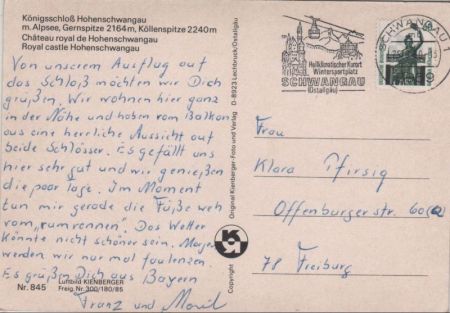 Königsschloß Hohenschwangau
m. Alpsee, Gernspitze 2164m, Köllenspitze 2240m
Château royal de Hohenschwangau
Royal castle Hohenschwangau
Von unserem Ausflug auf
das Schloß möchten wir Dich
grüßen. Wir wohnen hier ganz
in der Nähe und haben vom Balkon
aus eine herrliche Aussicht auf
beide Schlösser. Es gefällt uns
hier sehr gut und wir genießen
die paar Tage. Im Moment
tun mir gerade die Füße weh
vom „rumrennen“. Das Wetter
könnte nicht schöner sein. Morgen
werden wir nur mal faulenzen.
Es grüßen Dich aus Bayern
Franz und
Nr. 845
Luftbild KIENBERGER
Freig. Nr. 300/180/85
Original Kienberger-Foto und Verlag D-8923 Lechbruck/Ostallgäu
Copyright
Heilklimatischer Kurort
Wintersportplatz
SCHWANGAU
(Ostallgäu)
SCHWANGAU 1
Frau
Klara Pfirsig
Offenburgerstr.
78 Freiburg